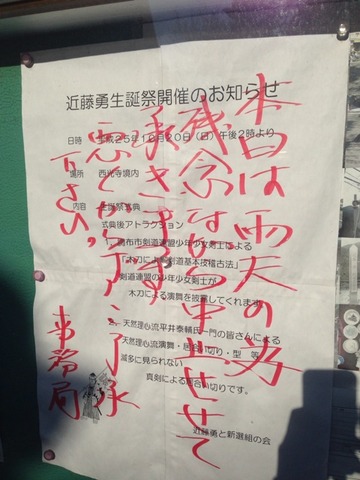 近藤勇生誕祭開催のお知らせ
日時 平成25年10月20日(日)午後2時より
場所 西光寺境内
内容 生誕祭式典
式典後アトラクション
1、調布市剣道連盟少年少女剣士による
「木刀による剣道基本技稽古法」
剣道連盟の少年少女剣士が
木刀による演舞を披露してくれます。
2、天然理心流平井泰輔氏一門の皆さんによる
天然理心流演舞・居合い切り・型 等
滅多に見られない
真剣による居合い切りです。
近藤勇と新選組の会
本日は雨天の為
残念ながら中止とせて
頂きます
悪しからずご了承
下さい。
事務局